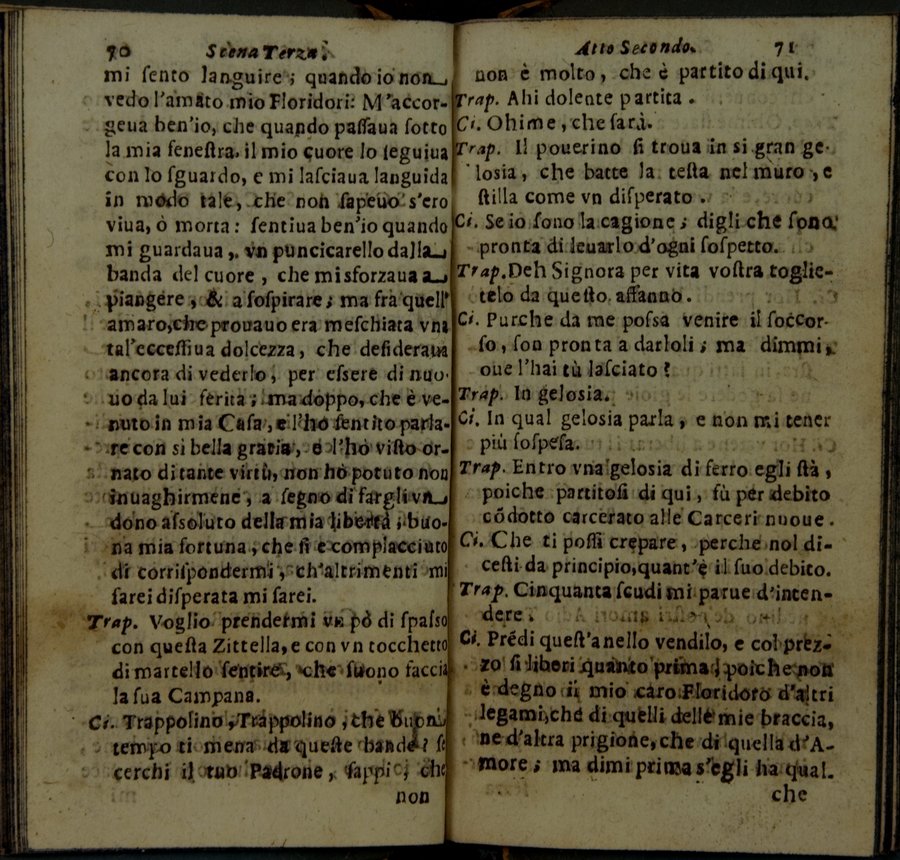 70 Scena Terza.
mi ſento languire; quando io non
vedo l'amato mio Floridori: M'accor-
geua ben'io, che quando paſſaua ſotto
la mia feneſtra. il mio cuore lo ſeguiua
con lo ſguardo, e mi laſciaua languida
in modo tale, che non ſapeuo s'ero
viua, ò morta: ſentiua ben'io quando
mi guardaua, vn puncicarello dalla
banda del cuore, che mi sforzaua a
piangere, & a ſoſpirare; ma frà quell'
amaro, che prouauo era meſchiata vna
tal'ecceſſiua dolcezza, che deſideraua
ancora di vederlo, per eſsere di nuo-
uo da lui ferita; ma doppo, che è ve-
nuto in mia Caſa, e l'hò ſentito parla-
re con sì bella gratia, e l'hò viſto or-
nato di tante virtù, non hò potuto non
inuaghirmene, a ſegno di fargli vn
dono aſsoluto della mia libertà; buo-
na mia fortuna, che ſi è complacciuto
di corriſpondermi, ch'altrimenti mi
ſarei diſperata mi ſarei.
Trap. Voglio prendermi vn pò di ſpaſso
con queſta Zittella, e con vn tocchetto
di martello ſentire, che ſuono faccia
la ſua Campana.
Ci. Trappolino, Trappolino, che buon
tempo ti mena da queſte bande? ſe
cerchi il tuo Padrone, ſappi, che
non
Atto Secondo. 71
non è molto, che è partito di qui.
Trap. Ahi dolente partita.
Ci. Ohime, che ſarà.
Trap. Il pouerino ſi troua in si gran ge-
loſia, che batte la teſta nel muro, e
ſtilla come vn diſperato.
Ci. Se io ſono la cagione; digli che ſono
pronta di leuarlo d'ogni ſoſpetto.
Trap. Deh Signora per vita voſtra toglie-
telo da queſto affanno.
Ci. Purche da me poſsa venire il ſoccor-
ſo, ſon pronta a darloli; ma dimmi,
oue l'hai tù laſciato?
Trap. In geloſia.
Ci. In qual geloſia parla, e non mi tener
più ſoſpeſa.
Trap. Entro vna geloſia di ferro egli ſtà,
poiche partitoſi di qui, fù per debito
cõdotto carcerato alle Carceri nuoue.
Ci. Che ti poſſi crepare, perche nol di-
ceſti da principio, quant'è il ſuo debito.
Trap. Cinquanta ſcudi mi parue d'inten-
dere.
Ci. Prẽdi queſt'anello vendilo, e col prez-
zo ſi liberi quanto prima; poiche non
è degno il mio caro Floridoro d'altri
legami, che di quelli delle mie braccia,
ne d'altra prigione, che di quella d'A-
more; ma dimi prima s'egli ha qual.
che